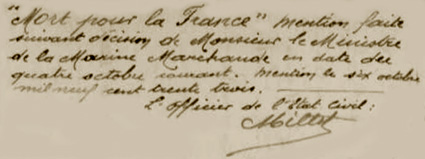 "Mort pour la France" mention faite
suivant décision de Monsieur le Ministre
de la Marine Marchande en date du
quatre octobre courant. Mention le six octobre
mil neuf cent trente trois.
L'officier de l'Etat Civil:
Millot